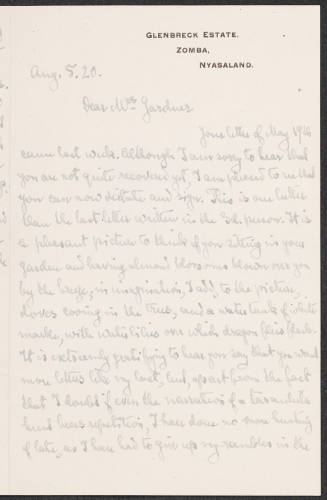 GLENBRECK ESTATE.
ZOMBA,
NYASALAND.
Aug. 5. 20.
Dear Mrs Gardner
Your letter of May 19th
came last week. Although I am sorry to hear that
you are not quite recovered yet, I am pleased to see that
you can now dictate and sign. This is one better
than the last letter written in the 3rd person. It is
a pleasant picture to think of you sitting in your
garden and having almond blossoms blown over you
by the breeze; in imagination, I add, to the picture,
doves cooing in the trees, and a water tank of white
marble, with waterlilies over which dragon flies flash.
It is extremely gratifying to hear you say that you want
more letters like my last, but, apart from the fact
that I doubt if even the narrative of a tarantula
hunt bears repetition, I have done no more hunting
of late, as I have had to give up my rambles in the